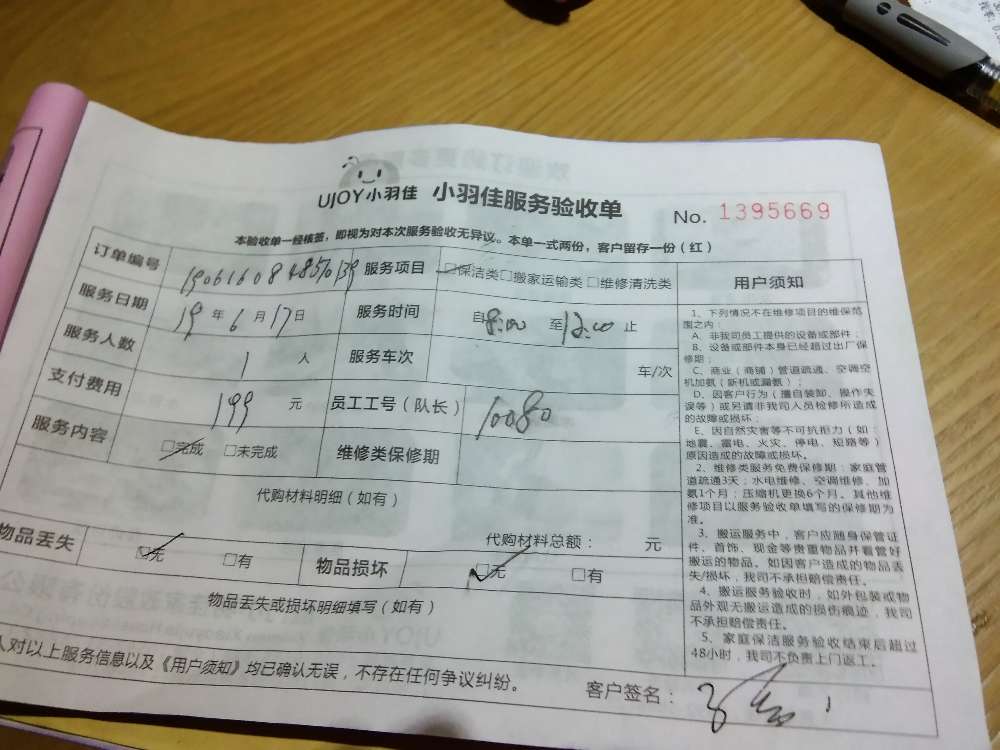 UJOY小羽佳 小羽佳服务验收单 No. 1395669
本验收单一经核签，即视为对本次服务验收无异议。本单一式两份，客户留存一份（红）
订单编号 服务项目 □保洁类□搬家运输类□维修清洗类 用户须知
服务日期 19 年 6 月 17 日 服务时间 自 8:00 至 12:00 止
服务人数 1 人 服务车次 车/次
支付费用 199 元 员工工号（队长） 10080
服务内容 □完成 □未完成 维修类保修期
代购材料明细（如有）
代购材料总额： 元
物品丢失 □无 □有 物品损坏 □无 □有
物品丢失或损坏明细填写（如有）
人对以上服务信息以及《用户须知》均已确认无误，不存在任何争议纠纷。
客户签名：
1、下列情况不在维修项目的维保范
围之内：
A、非我司员工提供的设备或部件；
B、设备或部件本身已经超过出厂保
修期；
C、商业（商铺）管道疏通、空调空
机加氨（新机或漏氨）；
D、因客户行为（擅自装卸、操作失
误等）或另请非我司人员检修所造成
的故障或损坏；
E、因自然灾害等不可抗拒力（如：
地震、雷电、火灾、停电、短路等）
原因造成的故障或损坏。
2、维修类服务免费保修期：家庭管
道疏通3天；水电维修、空调维修、加
氨1个月；压缩机更换6个月。其他维
修项目以服务验收单填写的保修期为
准。
3、搬运服务中，客户应随身保管证
件、首饰、现金等贵重物品并看管好
搬运的物品。如因客户造成的物品丢
失/损坏，我司不承担赔偿责任。
4、搬运服务验收时，如外包装或物
品外观无搬运造成的损伤痕迹，我司
不承担赔偿责任。
5、家庭保洁服务验收结束后超过
48小时，我司不负责上门返工。